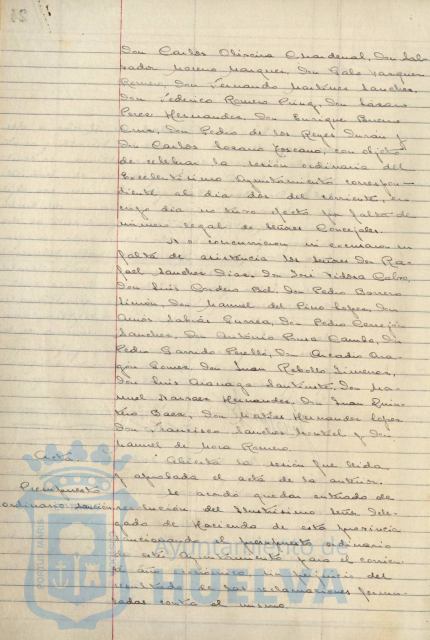 Don Carlos Oliveira Chardenal, Don Sal-
vador Moreno Marquez, Don Galo Vazquez
Romero, Don Fernando Martinez Sanchez,
Don Federico Romero Don Lazaro
Perez Hernandez, Don Enrique Bueno
Cruz, Don Pedro de los Reyes Duran y
Don Carlos Lozano Toscano, con objeto
de celebrar la sesion ordinaria del
Excelentisimo Ayuntamiento correspon-
diente al dia dos del corriente, en
cuyo dia no tuvo efecto por falta de
número legal de Señores Concejales.
No concurrieron ni excusaron su
falta de asistencia los señores Don Ra-
fael Sanchez Diaz, Don José Vidosa Calvo,
Don Luis Cordero Bel, Don Pedro Borrero
Limón, Don Manuel del Pino Lopez, Don
Amós Sabrás Gurrea, Don Pedro Cerrejón
Sanchez, Don Antonio Pousa Camba, Don
Pedro Garrido Perelló, Don Arcadio Ara-
gón Gomez, Don Juan Rebollo Jimenez,
Don Luis Don Ma-
nuel Narvaez Hernandez, Don Juan Quin-
tero Baez, Don Matías Hernandez Lopez
Don Francisco Sanchez y Don
Manuel de Mora Romero.
Acta. Abierta la sesión fue leida
y aprobada el acta de la anterior.
Presupuesto Se acordó quedar enterado de
ordinario. Sanción resolución del Ilustrísimo Señor Dele-
gado de Hacienda de esta provincia
sancionando el presupuesto ordinario
de este Ayuntamiento para el corrien-
te año económico, sin perjuicio del
resultado de las reclamaciones formu-
ladas contra el mismo.
Ayuntamiento de
HUELVA